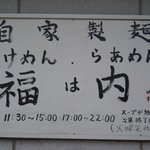 自家製麺
けめん・らあめん
福は内
11:30～15:00 17:00～22:00
スープが無